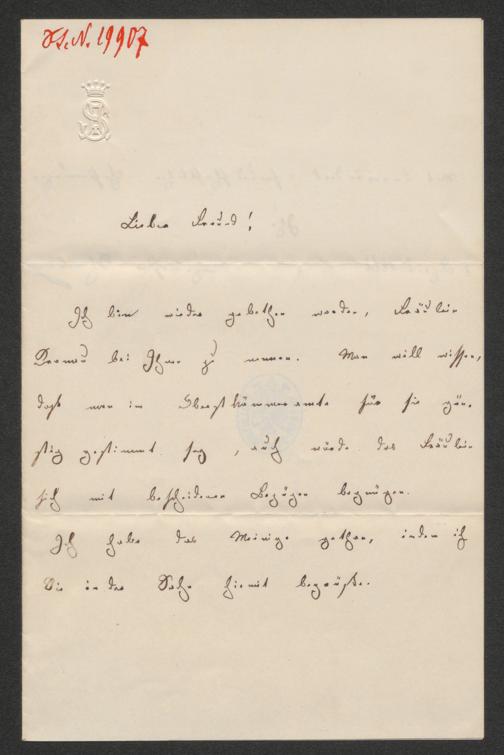 J.N. 19907
Lieber Freund!
Ich bin wieder gebethen worden, Fräulein
bei Ihnen zu nennen. Man will wissen,
daß man im Oberstkämmereramte für sie gün-
stig gestimmt sey, auch würde das Fräulein
sich mit bescheidenen Bezügen begnügen.
Ich habe das Meinige gethan, indem ich
Sie in der Sache hiemit begrüße.